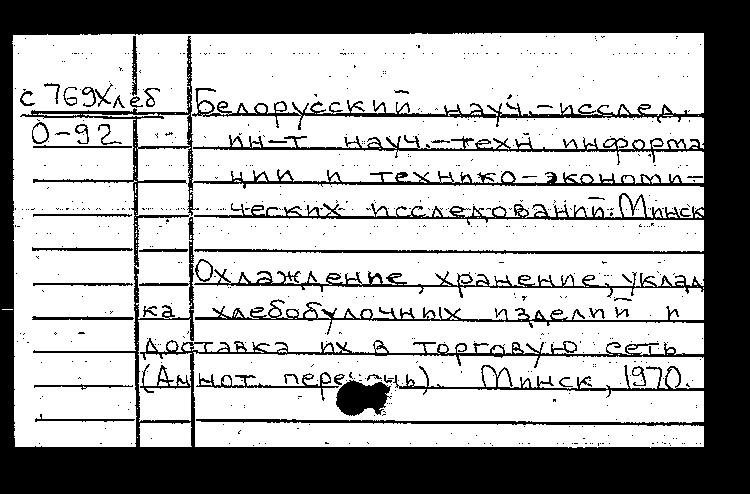 с 769Хлеб Белорусский науч.-исслед.
О-92 ин-т науч.-техн информа
ции и технико-экономи-
ческих исследований. Минск
Охлаждение, хранение, уклад
ка хлебобулочных изделий и
доставка их в торговую сеть
(Аннот. перечень). Минск, 1970.